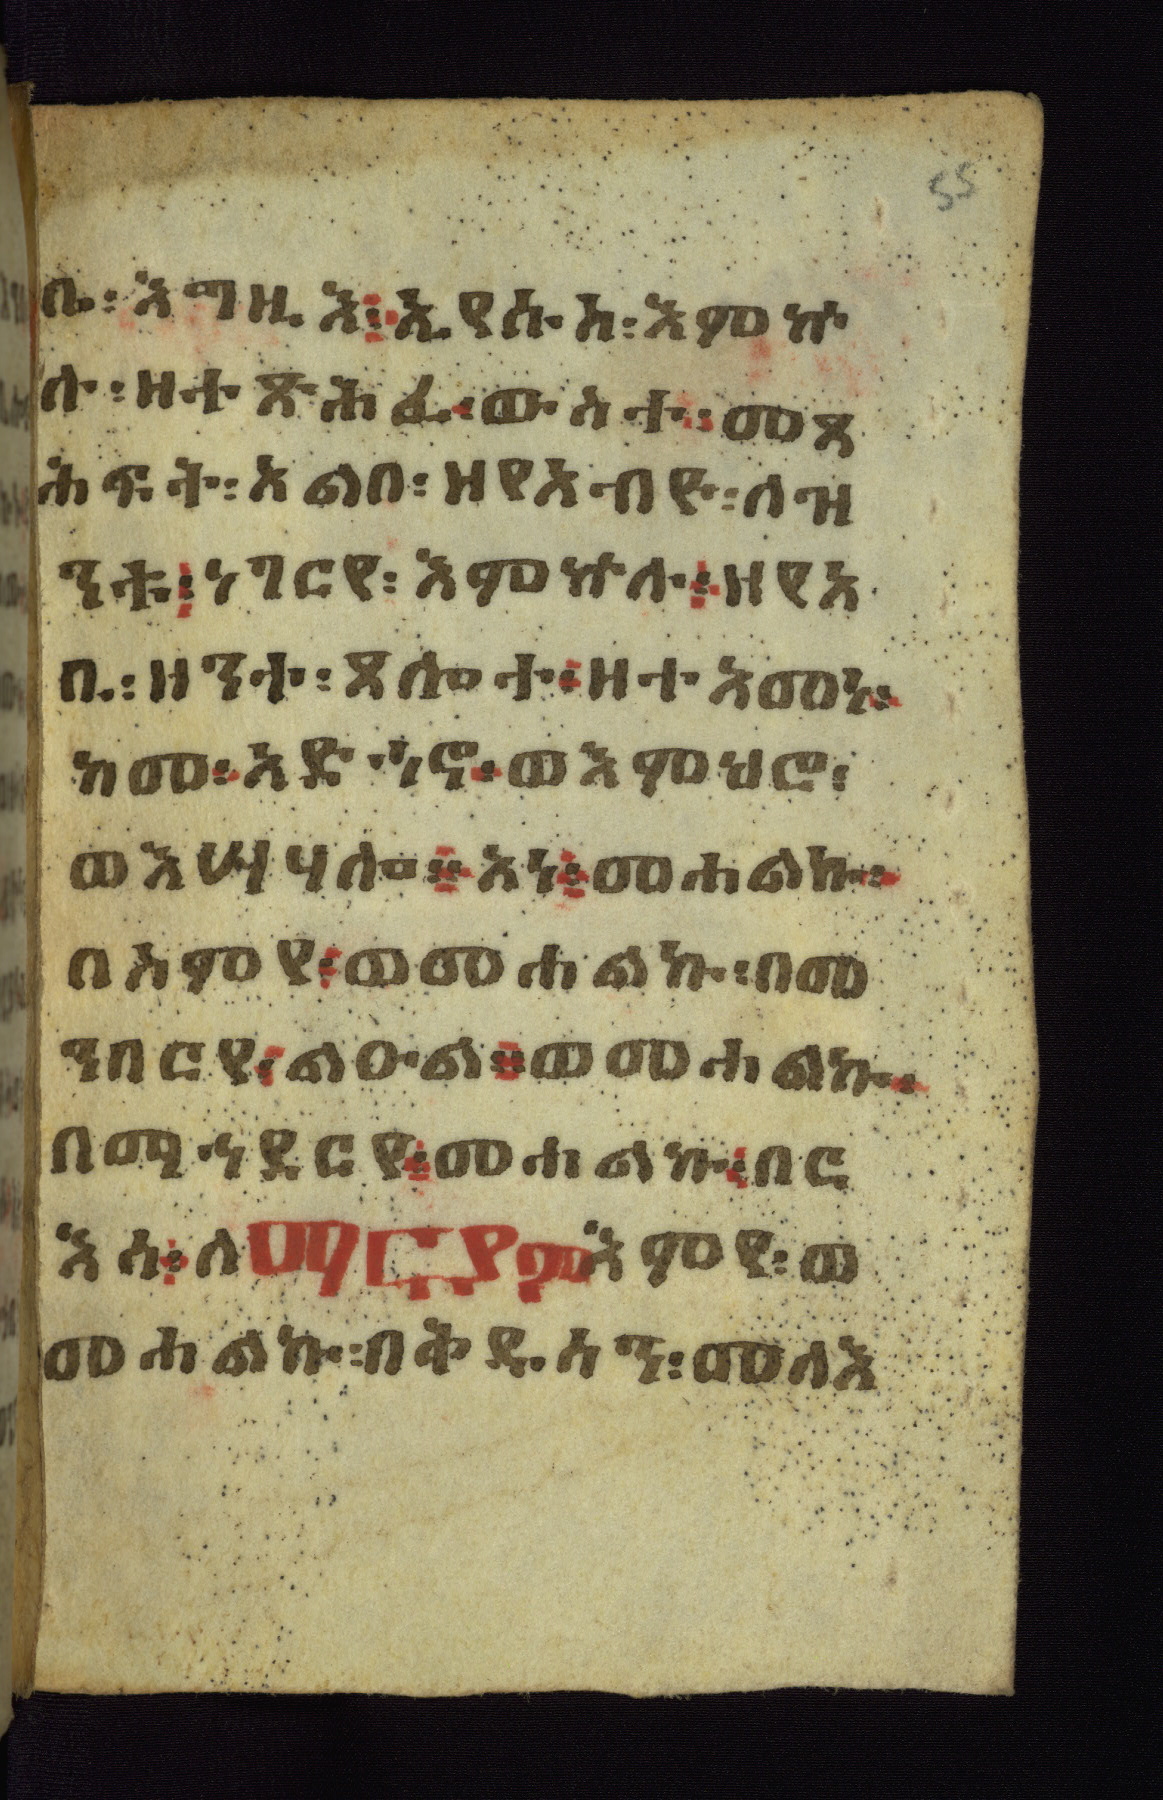 55
ቤ፡ እግዚእ፡ ኢየሱስ፡ እምኵ
ሉ፡ ዘተጽሕፈ፡ ውስተ፡ መጽ
ሐፍት፡ አልበ፡ ዘየአብዮ፡ ለዝ
ንቱ፡ ነገርየ፡ እምኵሉ፡ ዘየአ
በ፡ ዘንተ፡ ጸሎተ፡ ዘተአመነ፡
ከመ፡ አድኅኖ፡ ወእምህሮ፡
ወእሣሃሎ። አነ፡ መሐልኩ፡
በስምየ፡ ወመሐልኩ፡ በመ
ንበርየ፡ ልዑል። ወመሐልኩ፡
በማኅደርየ፡ መሐልኩ፡ በር
እሰ፡ ለማርያም እምየ፡ ወ
መሐልኩ፡ በቅዱሳን፡ መላእ